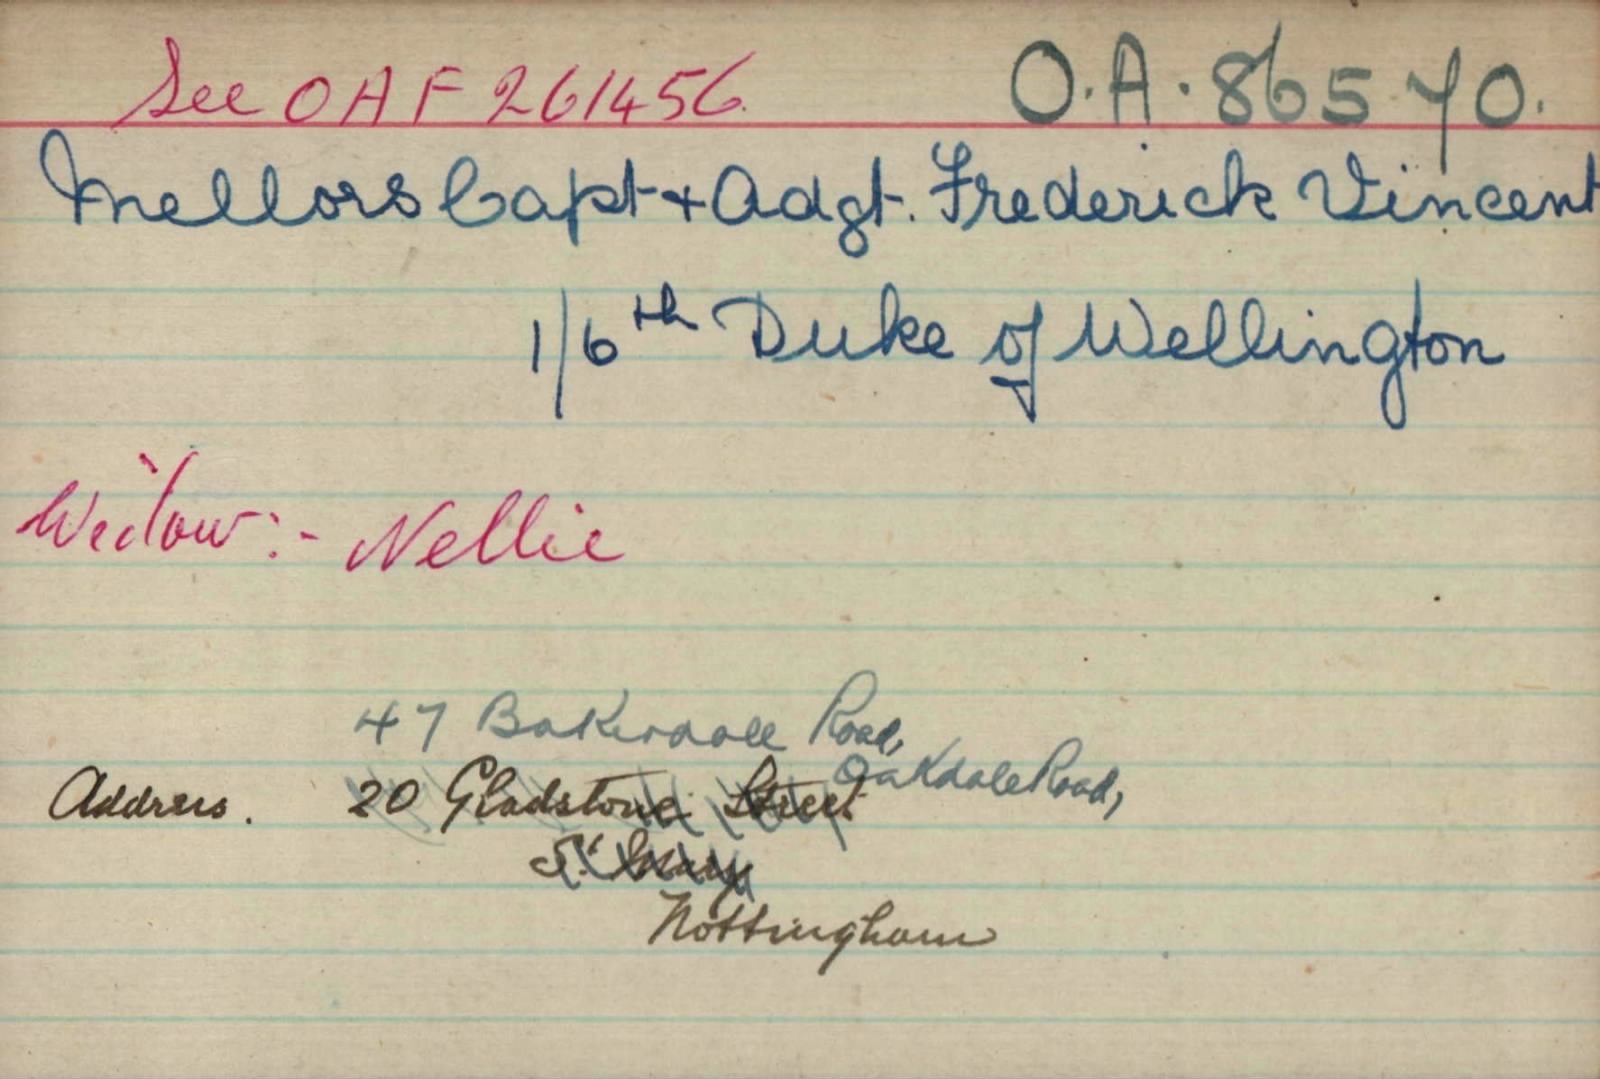 See OAF 261456. O.A. 86570.
Mellors Capt + Adgt. Frederick Vincent
1/6th Duke of Wellington
Widow:- Nellie
47 Bakerdale Road,
Oakdale Road,
Address. 20 Gladstone Street
St Mary
Nottingham